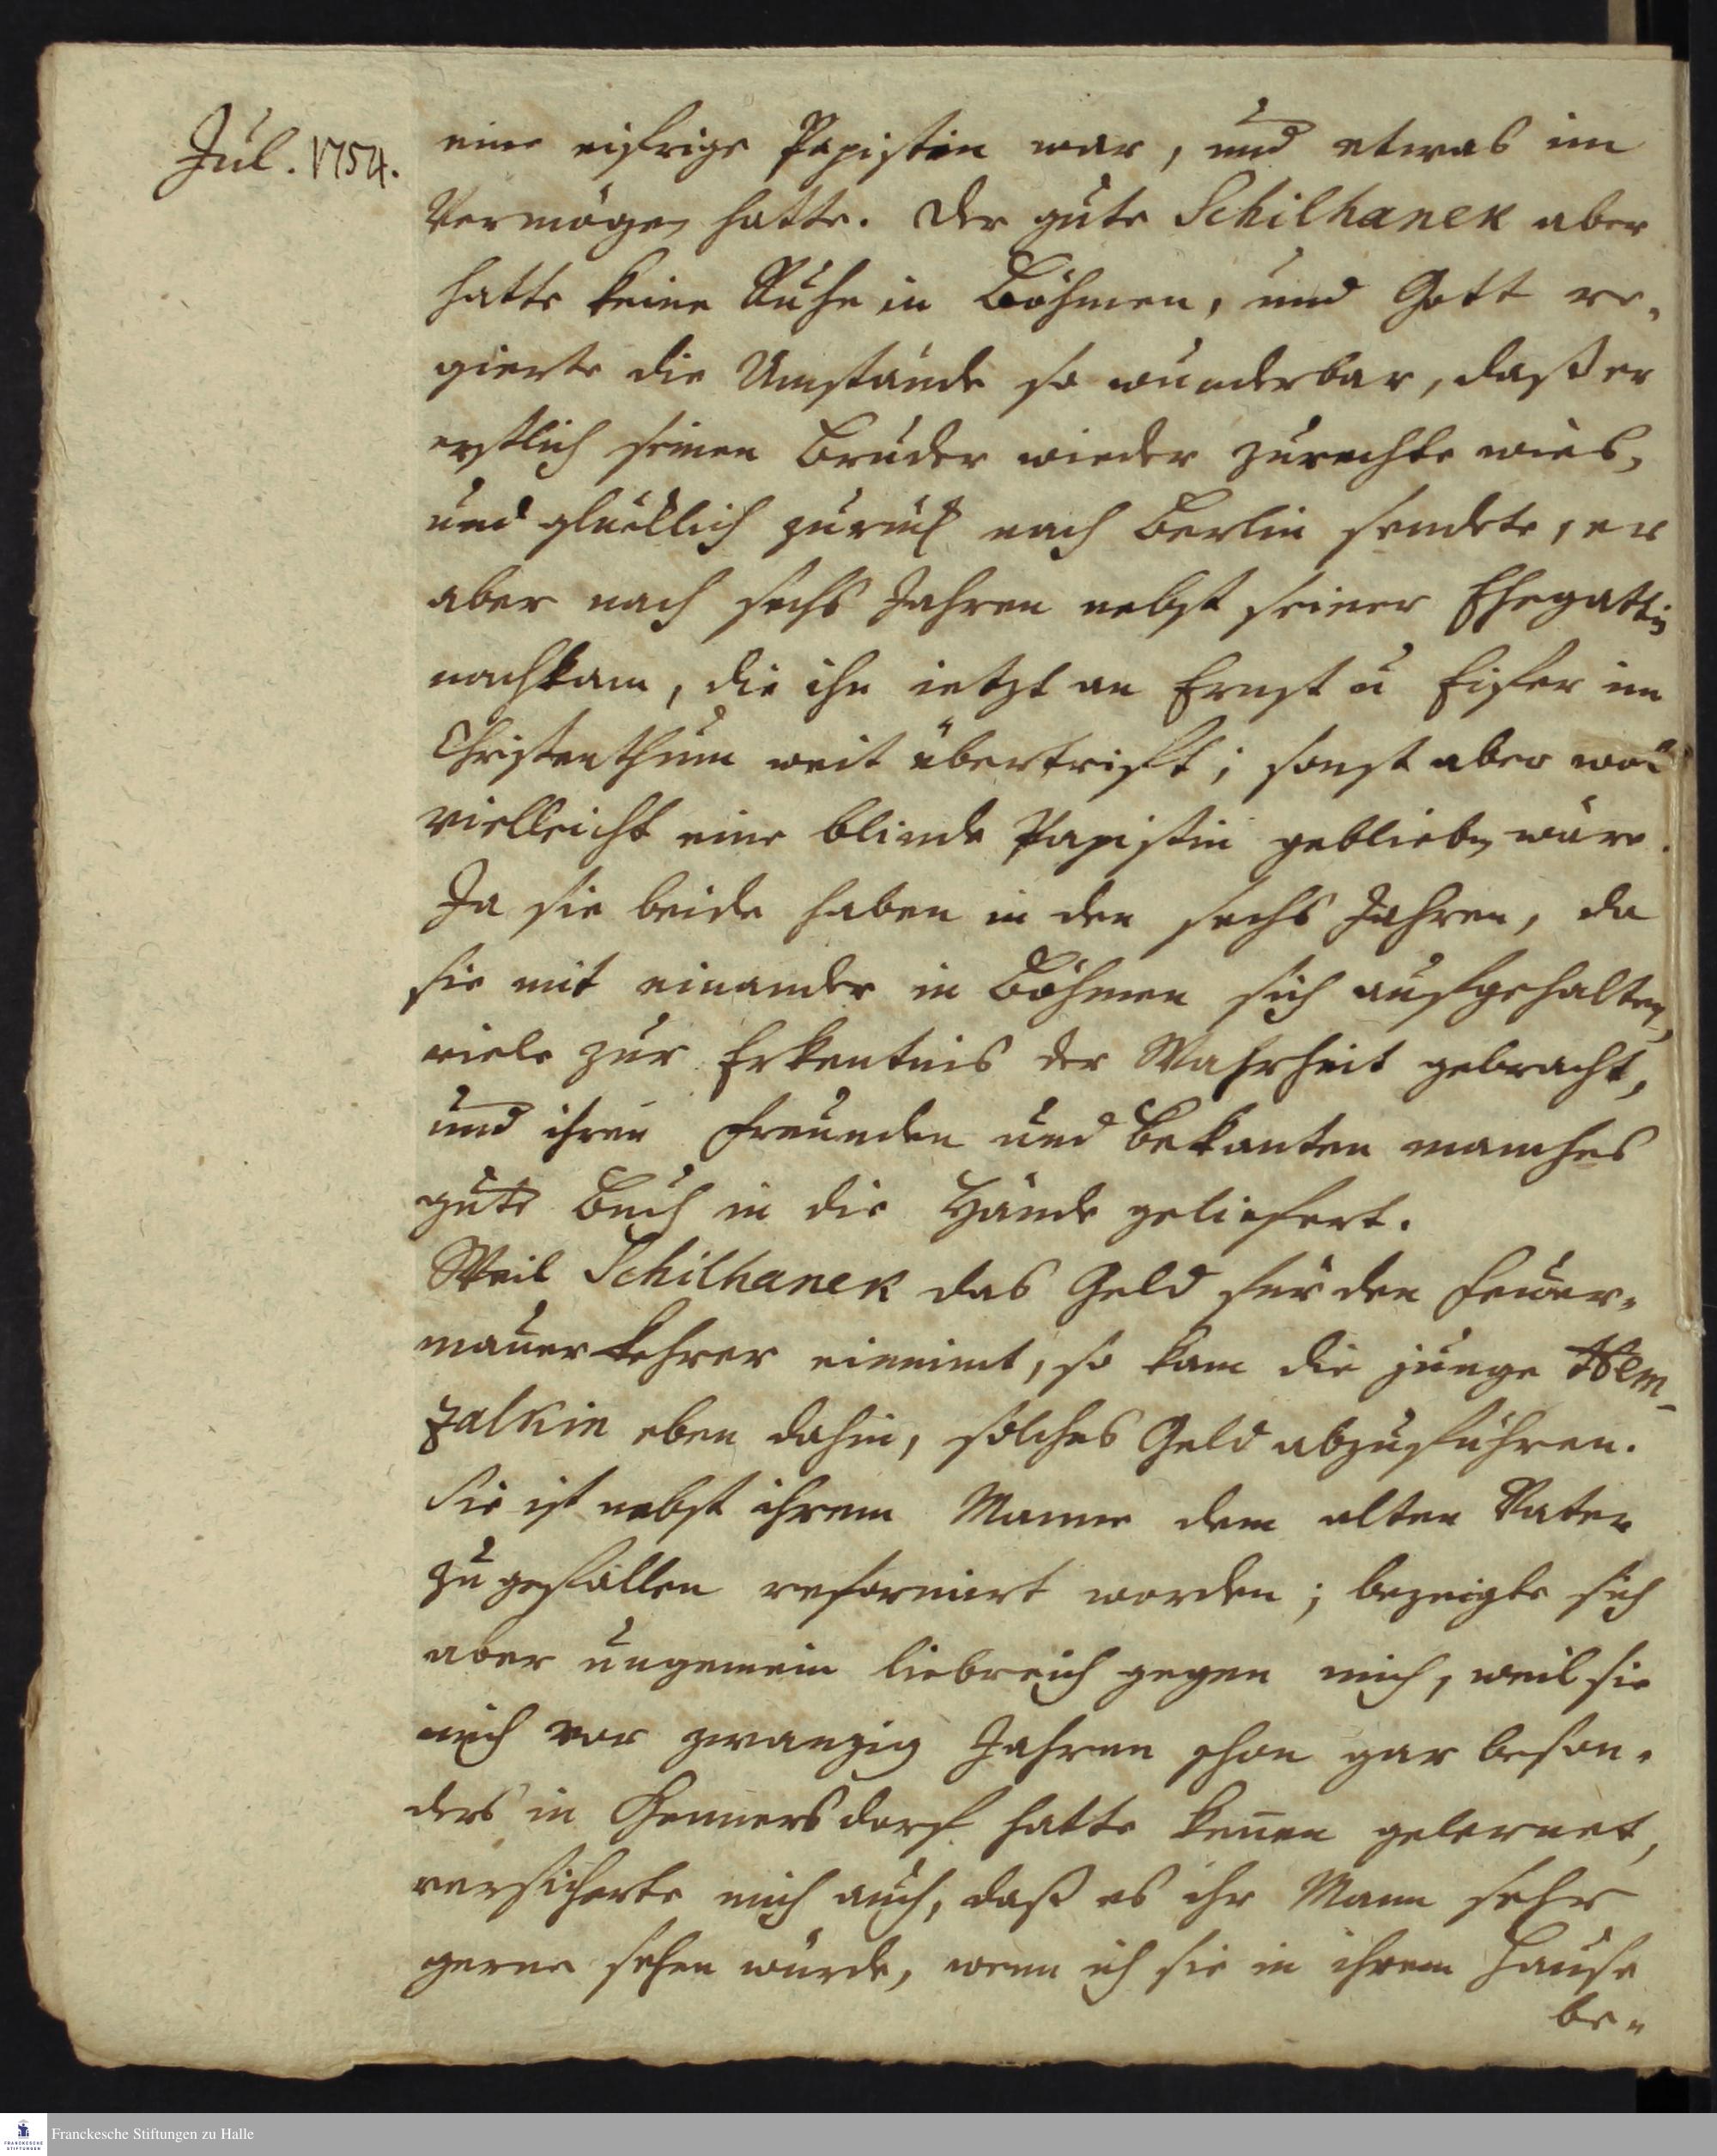 Jul. 1754.
eine eifrige Papistin war, und etwas im
Vermögen hatte. Der gute Schilhanek aber
hatte keine Ruhe in Böhmen, und Gott re-
gierte die Umstände so wunderbar, daß er
erstlich seinen Bruder wieder zurechte wies,
und glücklich zurück nach Berlin sendete, er
aber nach sechs Jahren nebst seiner Ehegattin
nachkam, die ihn ietzt an Ernst u Eifer im
Christenthum weit übertrift; sonst aber wol
vielleicht eine blinde Papistin geblieben wäre.
Ja sie beide haben in den sechs Jahren, da
sie mit einander in Böhmen sich aufgehalten,
viele zur Erkentnis der Wahrheit gebracht,
und ihren Freunden und Bekanten manches
gute Buch in die Hände geliefert.
Weil Schilhanek das Geld für den Feuer-
mauerkehrer einnimt, so kam die junge Hem-
zalkin eben dahin, solches Geld abzuführen.
Sie ist nebst ihrem Manne dem alten Vater
zugefallen reformirt worden; bezeigte sich
aber ungemein liebreich gegen mich, weil sie
mich vor zwanzig Jahren schon gar beson-
ders in Hennersdorf hatte kennen gelernet,
versicherte mich auch, daß es ihr Mann sehr
gerne sehen würde, wenn ich sie in ihrem Hause
be-
FRANCKESCHE STIFTUNGEN
Franckesche Stiftungen zu Halle